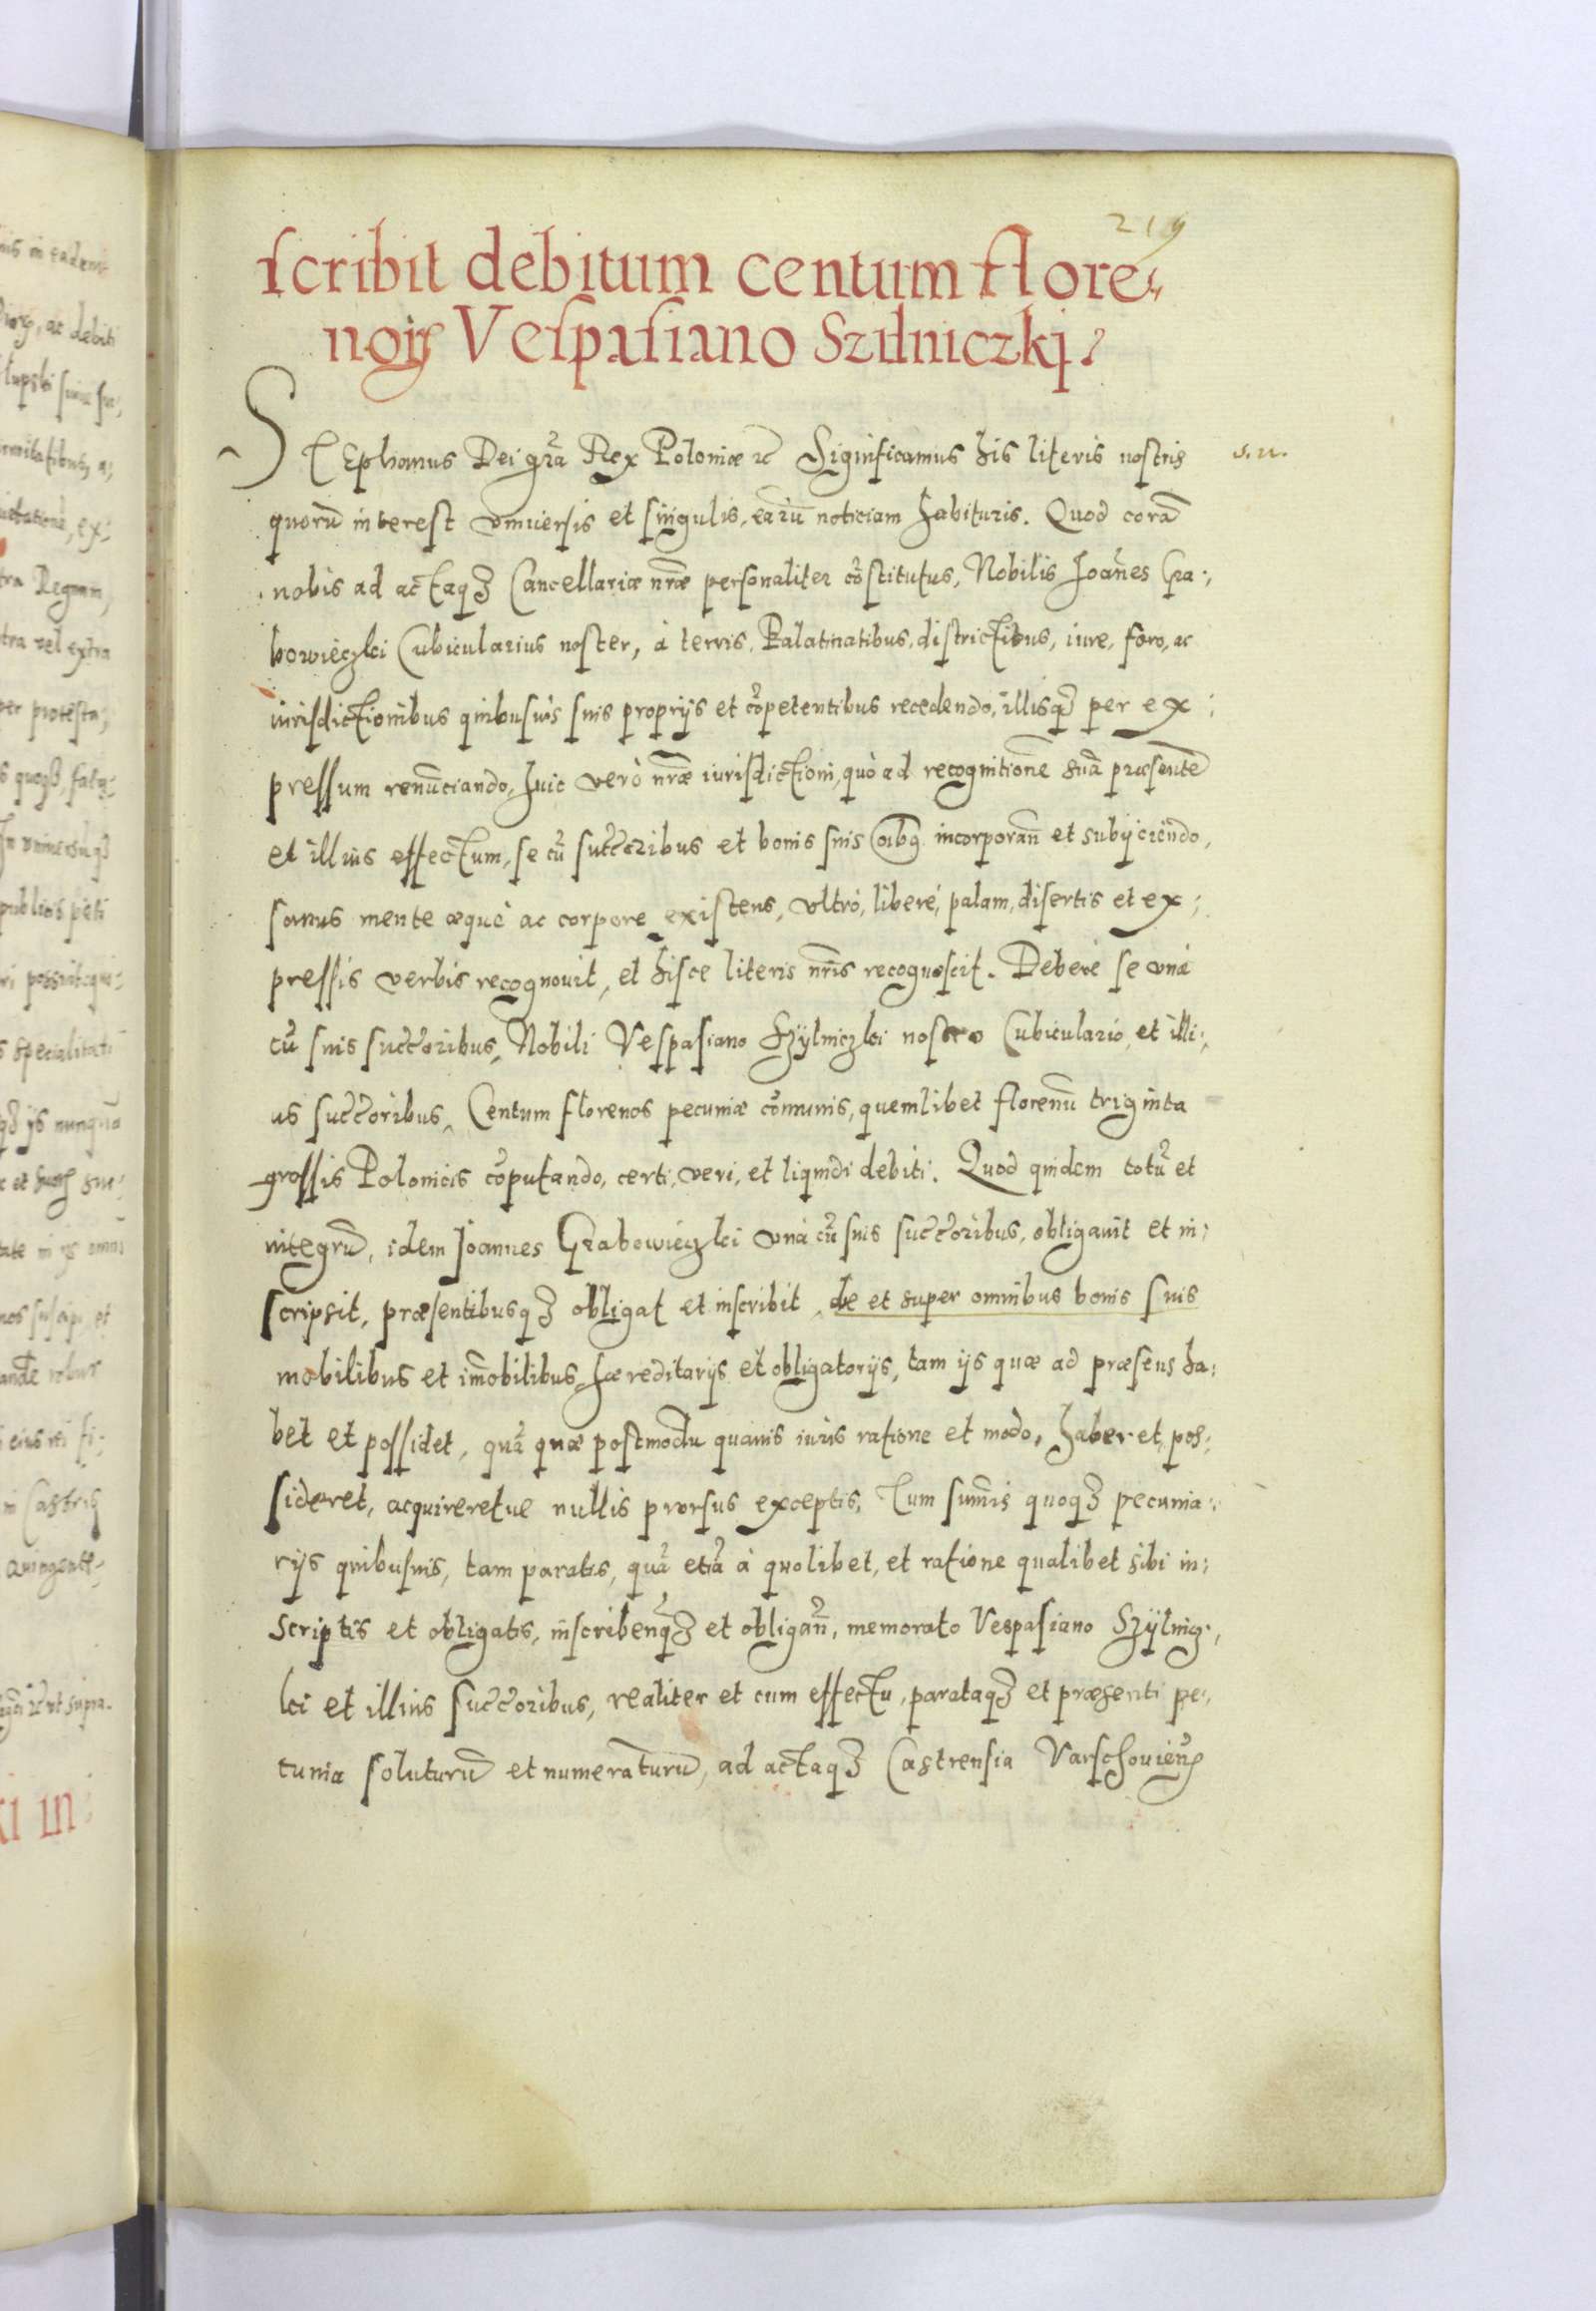 219
scribit debitum centum flore„
norꝝ Vespasiano Szilniczkj.
STEphanus Dei grã Rex Poloniæ ꝛc Significamus his literis nostris
s. n.
quorũ interest vniuersis et singulis, earũ noticiam habituris. Quod corã
nobis ad actaqꝫ Cancellariæ nr̃æ personaliter cõstitutus, Nobilis Joañes Gra„
bowieczki Cubicularius noster, à terris, Palatinatibus, districtibus, iure, foro, ac
iurisdictionibus quibusuis suis proprijs et cõpetentibus recedendo, illisqꝫ per ex„
pressum renũciando, huic verò nr̃æ iurisdictioni, quò ad recognitionẽ suã præsentẽ
et illius effectum, se cũ succ̃oribus et bonis suis oĩbꝯ incorporañ et subijciendo,
sanus mente æquè ac corpore existens, vltrò, liberè, palam, disertis et ex„
pressis verbis recognouit, et hisce literis nr̃is recognoscit. Debere se vnà
cũ suis succ̃oribus, Nobili Vespasiano Szÿlniczki nostro Cubiculario, et illi„
us succ̃oribus, Centum florenos pecuniæ cõmunis, quemlibet florenũ triginta
grossis Polonicis cõputando, certi, veri, et liquidi debiti. Quod quidem totũ et
integrũ, idem Joannes Grabowieczki vnà cũ suis succ̃oribus, obligauit et in„
scripsit, præsentibusqꝫ obligat et inscribit, de et super omnibus bonis suis
mobilibus et im̃obilibus, hæreditarijs et obligatorijs, tam ijs quæ ad præsens ha„
bet et possidet, quã quæ postmodũ quauis iuris ratione et modo, haberet, pos„
sideret, acquireretue nullis prorsus exceptis, Tum sum̃is quoqꝫ pecunia„
rijs quibusuis, tam paratis, quã etiã à quolibet, et ratione qualibet sibi in„
scriptis et obligatis, inscribeñqꝫ et obligañ, memorato Vespasiano Szÿlnicz„
ki et illius succ̃oribus, realiter et cum effectu, parataqꝫ et præsenti pe„
cunia soluturũ et numeraturũ, ad actaqꝫ Castrensia Varschouieñ